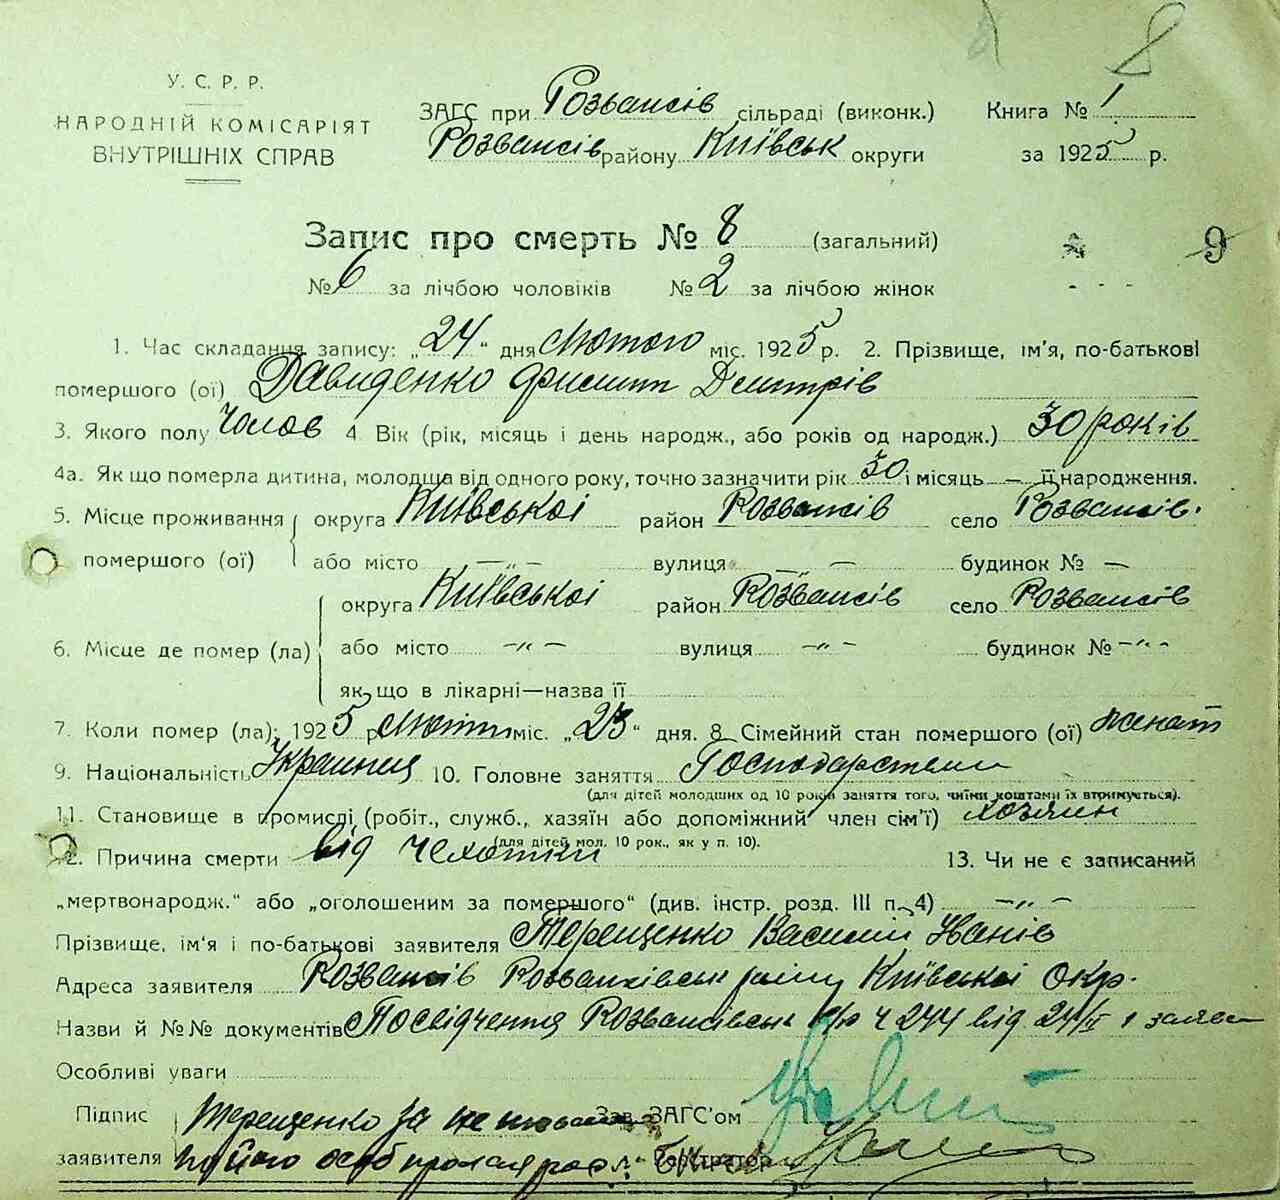 8
У. С. Р. Р.
НАРОДНІЙ КОМІСАРІЯТ
ВНУТРІШНІХ СПРАВ
ЗАГС при Розважів сільраді (виконк.)
Розважів району Київськ округи
Книга № 1
за 1925 р.
Запис про смерть № 8 (загальний)
9
№ 6 за лічбою чоловіків № 2 за лічбою жінок
1. Час складання запису: „24“ дня лютого міс. 1925 р. 2. Прізвище, ім'я, по-батькові
помершого (ої) Давиденко Дмитрів
3. Якого полу Чолов 4. Вік (рік, місяць і день народж., або років од народж.) 30 років
4а. Як що померла дитина, молодща від одного року, точно зазначити рік 30 і місяць — її народження.
5. Місце проживання округа Київської район Розважів село Розважів.
помершого (ої) або місто — „ — вулиця — „ — будинок № —
округа Київської район Розважів село Розважів
6. Місце де помер (ла) або місто — „ — вулиця — „ — будинок № — „ -
як що в лікарні—назва її
7. Коли помер (ла): 1925 р. міс. „23“ дня. 8. Сімейний стан помершого (ої) женат
9. Національність Украинец 10. Головне заняття
(для дітей молодших од 10 років заняття того, чиїми коштами їх втримується).
11. Становище в промислі (робіт., служб., хазяїн або допоміжний член сім'ї) хозяин
(для дітей мол. 10 рок., як у п. 10).
12. Причина смерти від чехотки 13. Чи не є записаний
„мертвонародж.“ або „оголошеним за помершого“ (див. інстр. розд. III п. 4) — „ —
Прізвище, ім'я і по-батькові заявителя Терещенко Василий Іванів
Адреса заявителя Розважів Розважівськ райну Київської Окр.
Назви й №№ документів Посвідчення Розважівськ ч 244 від 24/II
Особливі уваги
Підпис Терещенко за Зав. ЗАГС'ом
заявителя Реєстратор